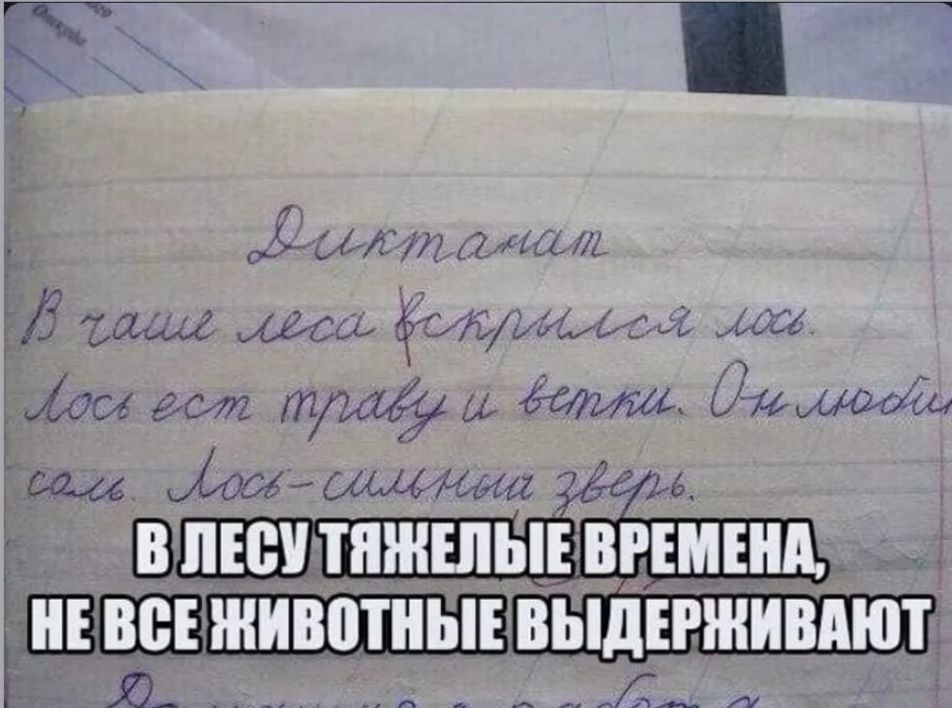 Откуда
Диктанат
В чаше леса вскрылся лось.
Лось ест траву и ветки. Он люби
соль. Лось – сильный зверь.
В ЛЕСУ ТЯЖЕЛЫЕ ВРЕМЕНА,
НЕ ВСЕ ЖИВОТНЫЕ ВЫДЕРЖИВАЮТ
работа